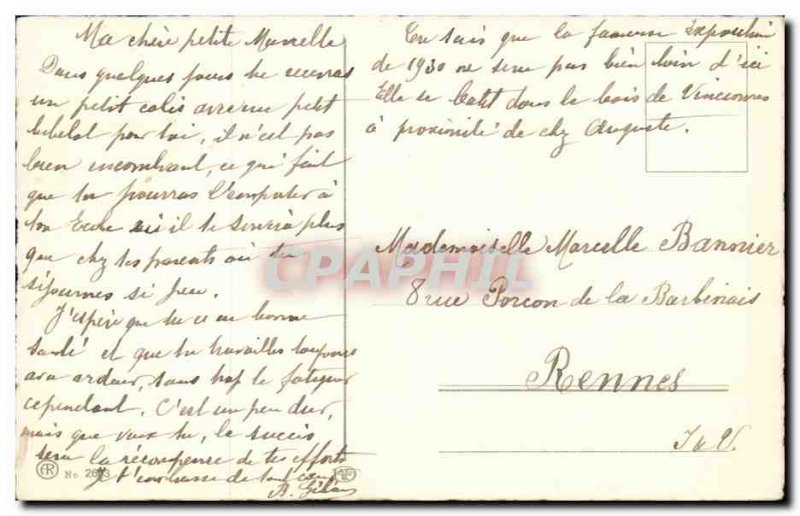 Ma chère petite Marcelle
Dans quelques jours tu recevras
un petit colis avec un petit
bibelot pour toi, il n'est pas
bien encombrant, ce qui fait
que tu pourras l'emporter à
ton École où il te servira plus
que chez tes parents où tu
séjournes si peu.
J'espère que tu es en bonne
santé et que tu travailles toujours
avec ardeur, sans trop te fatiguer
cependant. C'est un peu dur,
mais que veux tu, le succès
sera la récompense de tes efforts
Je t'embrasse de tout cœur
Tu sais que la fameuse exposition
de 1930 ne sera pas bien loin d'ici
Elle se batit dans le bois de Vincennes
à proximité de chez Auguste.
Mademoiselle Marcelle Bannier
8 rue Porcon de la Barbinais
Rennes
I et V.
CPAPHIL
No 2673